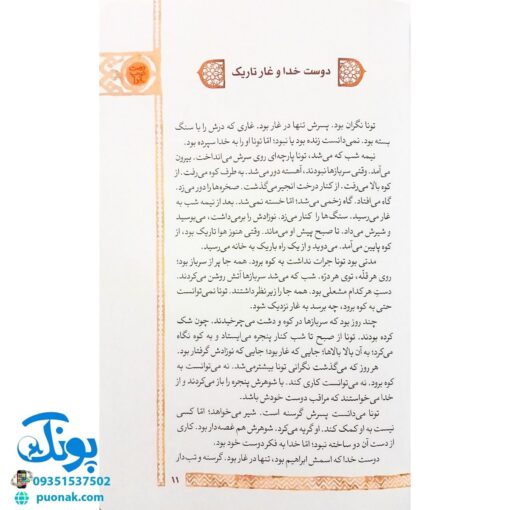 دوست خدا و غار تاریک
تونا نگران بود. پسرش تنها در غار بود. غاری که درش را با سنگ
بسته بود. نمی‌دانست زنده بود یا نبود؛ امّا تونا او را به خدا سپرده بود.
نیمه شب که می‌شد، تونا پارچه‌ای روی سرش می‌انداخت. بیرون
می‌آمد. وقتی سربازها نبودند، آهسته دور می‌شد. به طرف کوه می‌رفت. از
کوه بالا می‌رفت. از کنار درخت انجیر می‌گذشت. صخره‌ها را دور می‌زد.
گاه می‌افتاد. گاه زخمی می‌شد؛ امّا خسته نمی‌شد. بعد از نیمه شب به
غار می‌رسید. سنگ‌ها را کنار می‌زد. نوزادش را برمی‌داشت، می‌بوسید
و شیرش می‌داد. تا صبح پیش او می‌ماند. وقتی هنوز هوا تاریک بود، از
کوه پایین می‌آمد. می‌دوید و از یک راه باریک به خانه می‌رسید.
مدتی بود تونا جرات نداشت به کوه برود. همه جا پر از سرباز بود؛
روی هر قلّه، توی هر درّه. شب که می‌شد سربازها آتش روشن می‌کردند.
دستِ هر کدام مشعلی بود. همه جا را زیر نظر داشتند. تونا نمی‌توانست
حتی به کوه برود، چه برسد به غار نزدیک شود.
چند روز بود که سربازها در کوه و دشت می‌چرخیدند. چون شک
کرده بودند. تونا از صبح تا شب کنار پنجره می‌ایستاد و به کوه نگاه
می‌کرد؛ به آن بالا بالاها؛ جایی که غار بود؛ جایی که نوزادش گرفتار بود.
هر روز که می‌گذشت نگرانی تونا بیشتر می‌شد. نه می‌توانست به
کوه برود. نه می‌توانست کاری کند. با شوهرش پنجره را باز می‌کردند و از
خدا می‌خواستند که مراقب دوست خودش باشد.
تونا می‌دانست پسرش گرسنه است. شیر می‌خواهد؛ امّا کسی
نیست به او کمک کند. او گریه می‌کرد. شوهرش هم غصه‌دار بود. کاری
از دست آن دو ساخته نبود؛ امّا خدا به فکر دوست خود بود.
دوست خدا که اسمش ابراهیم بود، تنها در غار بود. گرسنه و تب‌دار
۱۱
پونک
09351537502
puonak.com